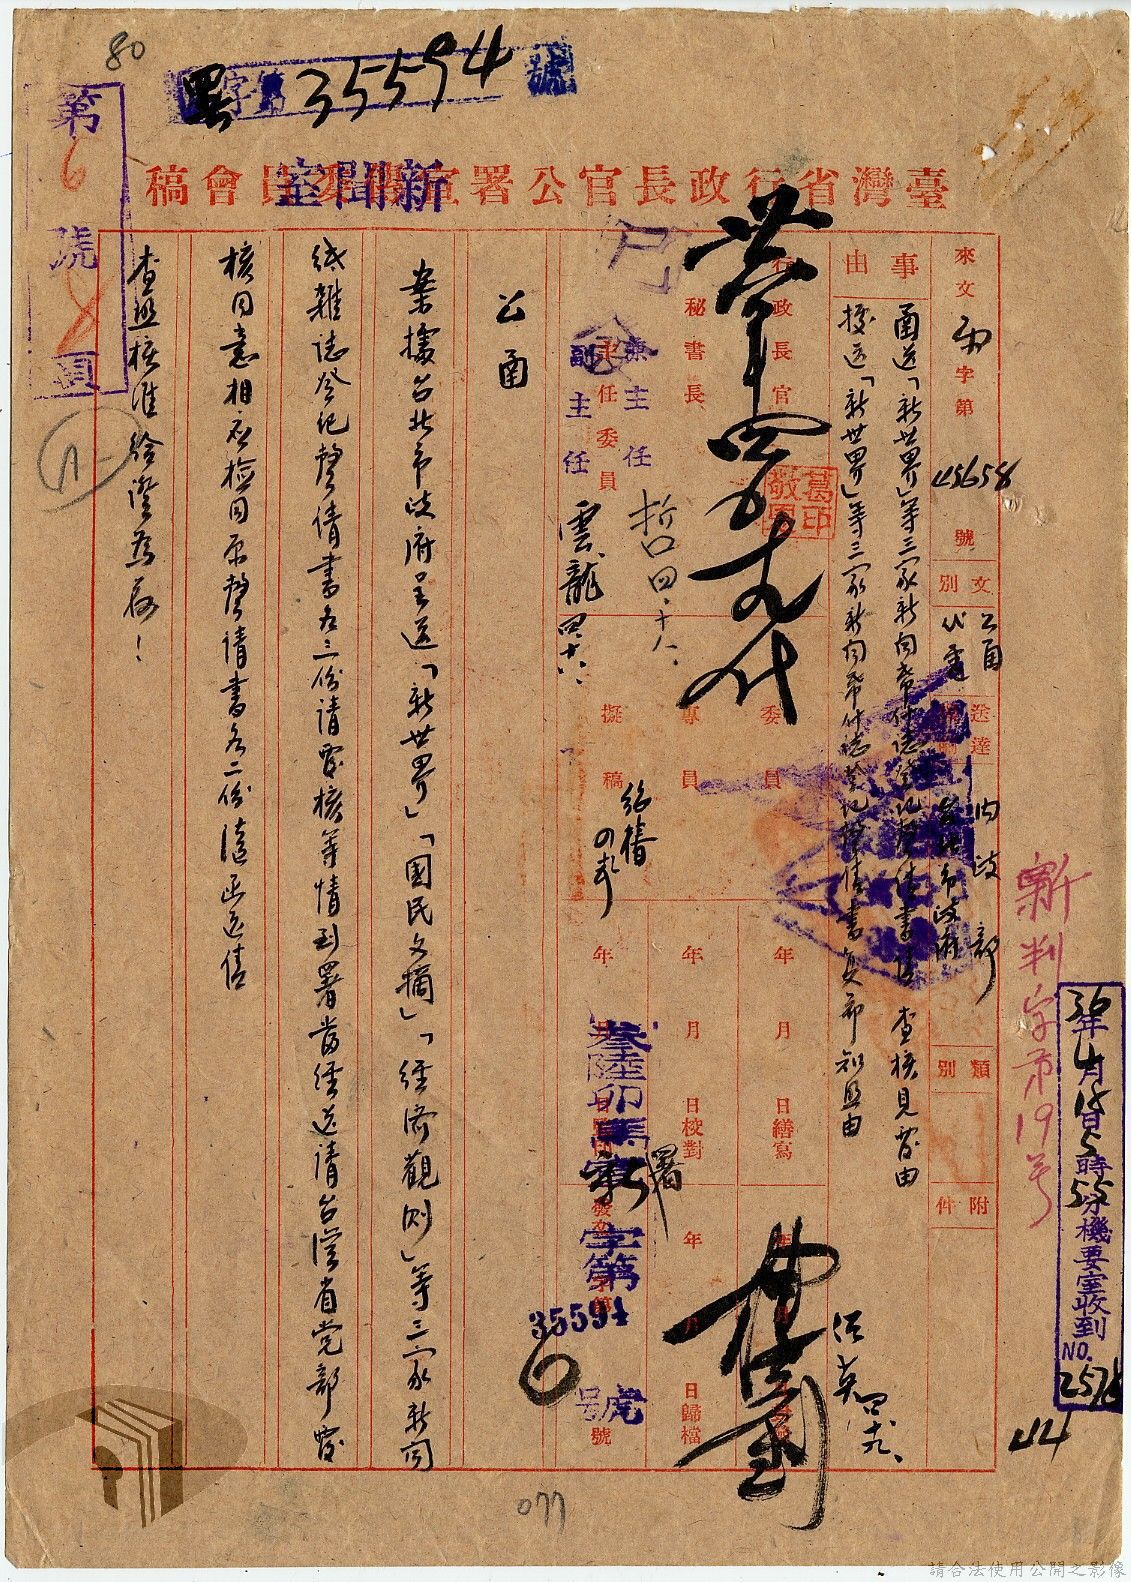 80
署字第35594號
臺灣省行政長官公署宣傳委員會稿
新聞室
第6號
頁
來文 字第45658號
文別 公函 代電
送達機關 內政部 台北市政府
類別
附件
事由
函送「新世界」等三家新聞紙雜誌登記聲請書請 查核見復由
據送「新世界」等三家新聞紙雜誌登記聲請書 復希知照由
行政長官
秘書長
兼主任
副主任
主任委員
葛敬恩印
哲 四、十八、
雲龍 四、十八、
委員
專員
擬稿
年 月 日繕寫
年 月 日校對
年 月 日歸檔
叁陸卯 署新字第
35594
號
公函
案據台北市政府呈送「新世界」「國民文摘」「經濟觀測」等三家新聞
紙雜誌登記聲請書各三份請鑒核等情到署當經送請台灣省党部鑒
核同意相應檢同原聲請書各二份隨函送請
查照核准給證為荷!
新判字第19号
36年4月18日5時55分機要室收到
NO. 2578
44
077
請合法使用公開之影像